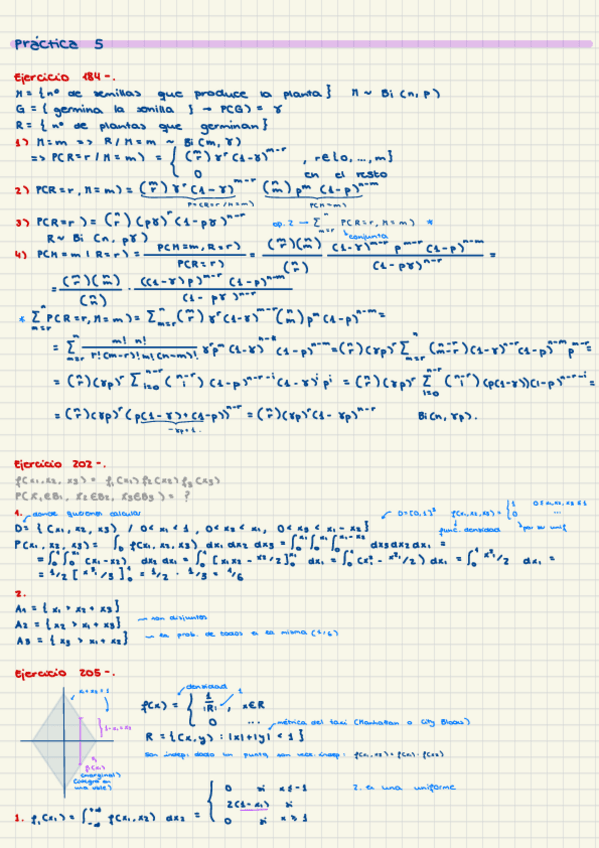 Práctica 5
Ejercicio 184-.
M = {nº de semillas que produce la planta} M ~ Bi (n, p)
G = { germina la semilla } → P(G) = γ
R = {nº de plantas que germinan}
1) M=m => R/M=m ~ Bi(m, γ)
=> P(R=r/M=m) = { (m r) γ^r (1-γ)^(m-r) , r∈{0, ..., m}
0 en el resto
2) P(R=r, M=m) = (m r) γ^r (1-γ)^(m-r) (n m) p^m (1-p)^(n-m)
P(R=r/M=m) P(M=m)
3) P(R=r) = (n r) (pγ)^r (1-pγ)^(n-r) ap. 2 → Σ_(m=r)^n P(R=r, M=m) *
R ~ Bi (n, pγ) conjunta
4) P(M=m | R=r) = P(M=m, R=r) / P(R=r) = (m r)(n m) / (n r) · (1-γ)^(m-r) p^(m-r) (1-p)^(n-m) / (1-pγ)^(n-r) =
= (m r)(n m) / (n r) · ((1-γ)p)^(m-r) (1-p)^(n-m) / (1-pγ)^(n-r)
* Σ_(m=r)^n P(R=r, M=m) = Σ_(m=r)^n (m r) γ^r (1-γ)^(m-r) (n m) p^m (1-p)^(n-m) =
= Σ_(m=r)^n m! n! / r!(m-r)! m! (n-m)! γ^r p^m (1-γ)^(m-r) (1-p)^(n-m) = (n r)(γp)^r Σ_(m=r)^n (n-r m-r)(1-γ)^(m-r) (1-p)^(n-m) p^(m-r) =
= (n r)(γp)^r Σ_(i=0)^(n-r) (n-r i) (1-p)^(n-r-i) (1-γ)^i p^i = (n r)(γp)^r Σ_(i=0)^(n-r) (n-r i) (p(1-γ))^i (1-p)^(n-r-i) =
= (n r)(γp)^r (p(1-γ)+(1-p))^(n-r) = (n r)(γp)^r (1-γp)^(n-r) Bi(n, γp).
-γp+1.
Ejercicio 202-.
f(x1, x2, x3) = f1(x1) f2(x2) f3(x3)
P(X1∈B1, X2∈B2, X3∈B3) = ?
1. donde queremos calcular
D = { (x1, x2, x3) / 0<x1<1, 0<x2<x1, 0<x3<x1-x2} Ω=[0,1]³ f(x1,x2,x3) = { 1 0≤x1,x2,x3≤1
0 ...
func. densidad por ser unif
P(x1, x2, x3) = ∫_D f(x1, x2, x3) dx1 dx2 dx3 = ∫_0^1 ∫_0^x1 ∫_0^(x1-x2) dx3 dx2 dx1 =
= ∫_0^1 ∫_0^x1 (x1-x2) dx2 dx1 = ∫_0^1 [x1x2 - x2²/2]_0^x1 dx1 = ∫_0^1 (x1² - x1²/2) dx1 = ∫_0^1 x1²/2 dx1 =
= 1/2 [x1³/3]_0^1 = 1/2 · 1/3 = 1/6
2.
A1 = {x1 > x2 + x3}
A2 = {x2 > x1 + x3} ~ son disjuntos
A3 = {x3 > x1 + x2} ~ la prob. de todos es la misma (1/6)
Ejercicio 205-.
densidad
f(x) = { 1/|R| , x∈R
0 ...
métrica del taxi (Manhattan o City Block)
R = {(x, y) : |x|+|y| < 1}
1. f1(x1) = ∫_-∞^+∞ f(x1, x2) dx2 = { 0 si x≤-1
2(1-x1) si
0 si x≥1
2. es una uniforme